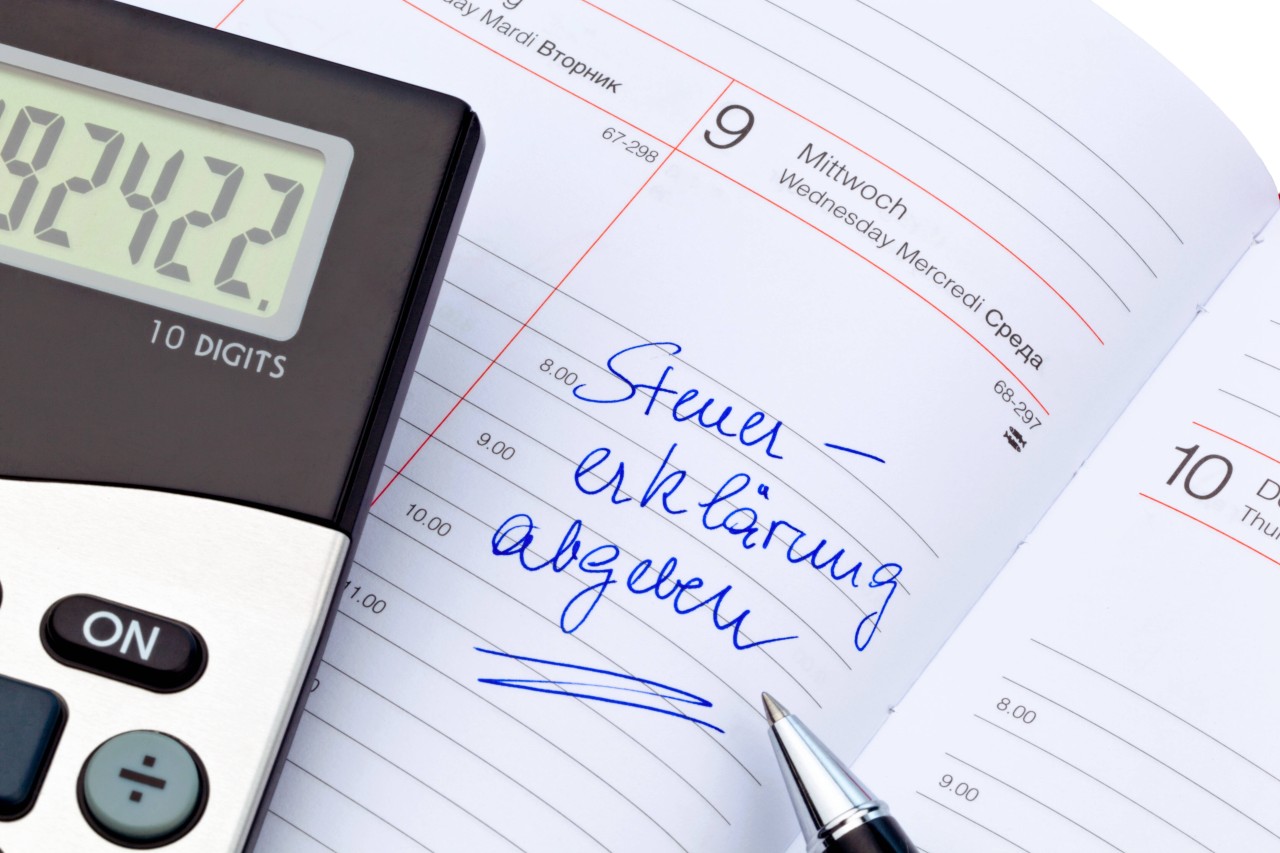 82422.
10 DIGITS
ON
÷
Mardi Вторник
67-298
9 Mittwoch
Wednesday Mercredi Среда
68-297
8.00
9.00
10.00
11.00
Steuer –
erklärung
abgeben
10
8.00
9.00